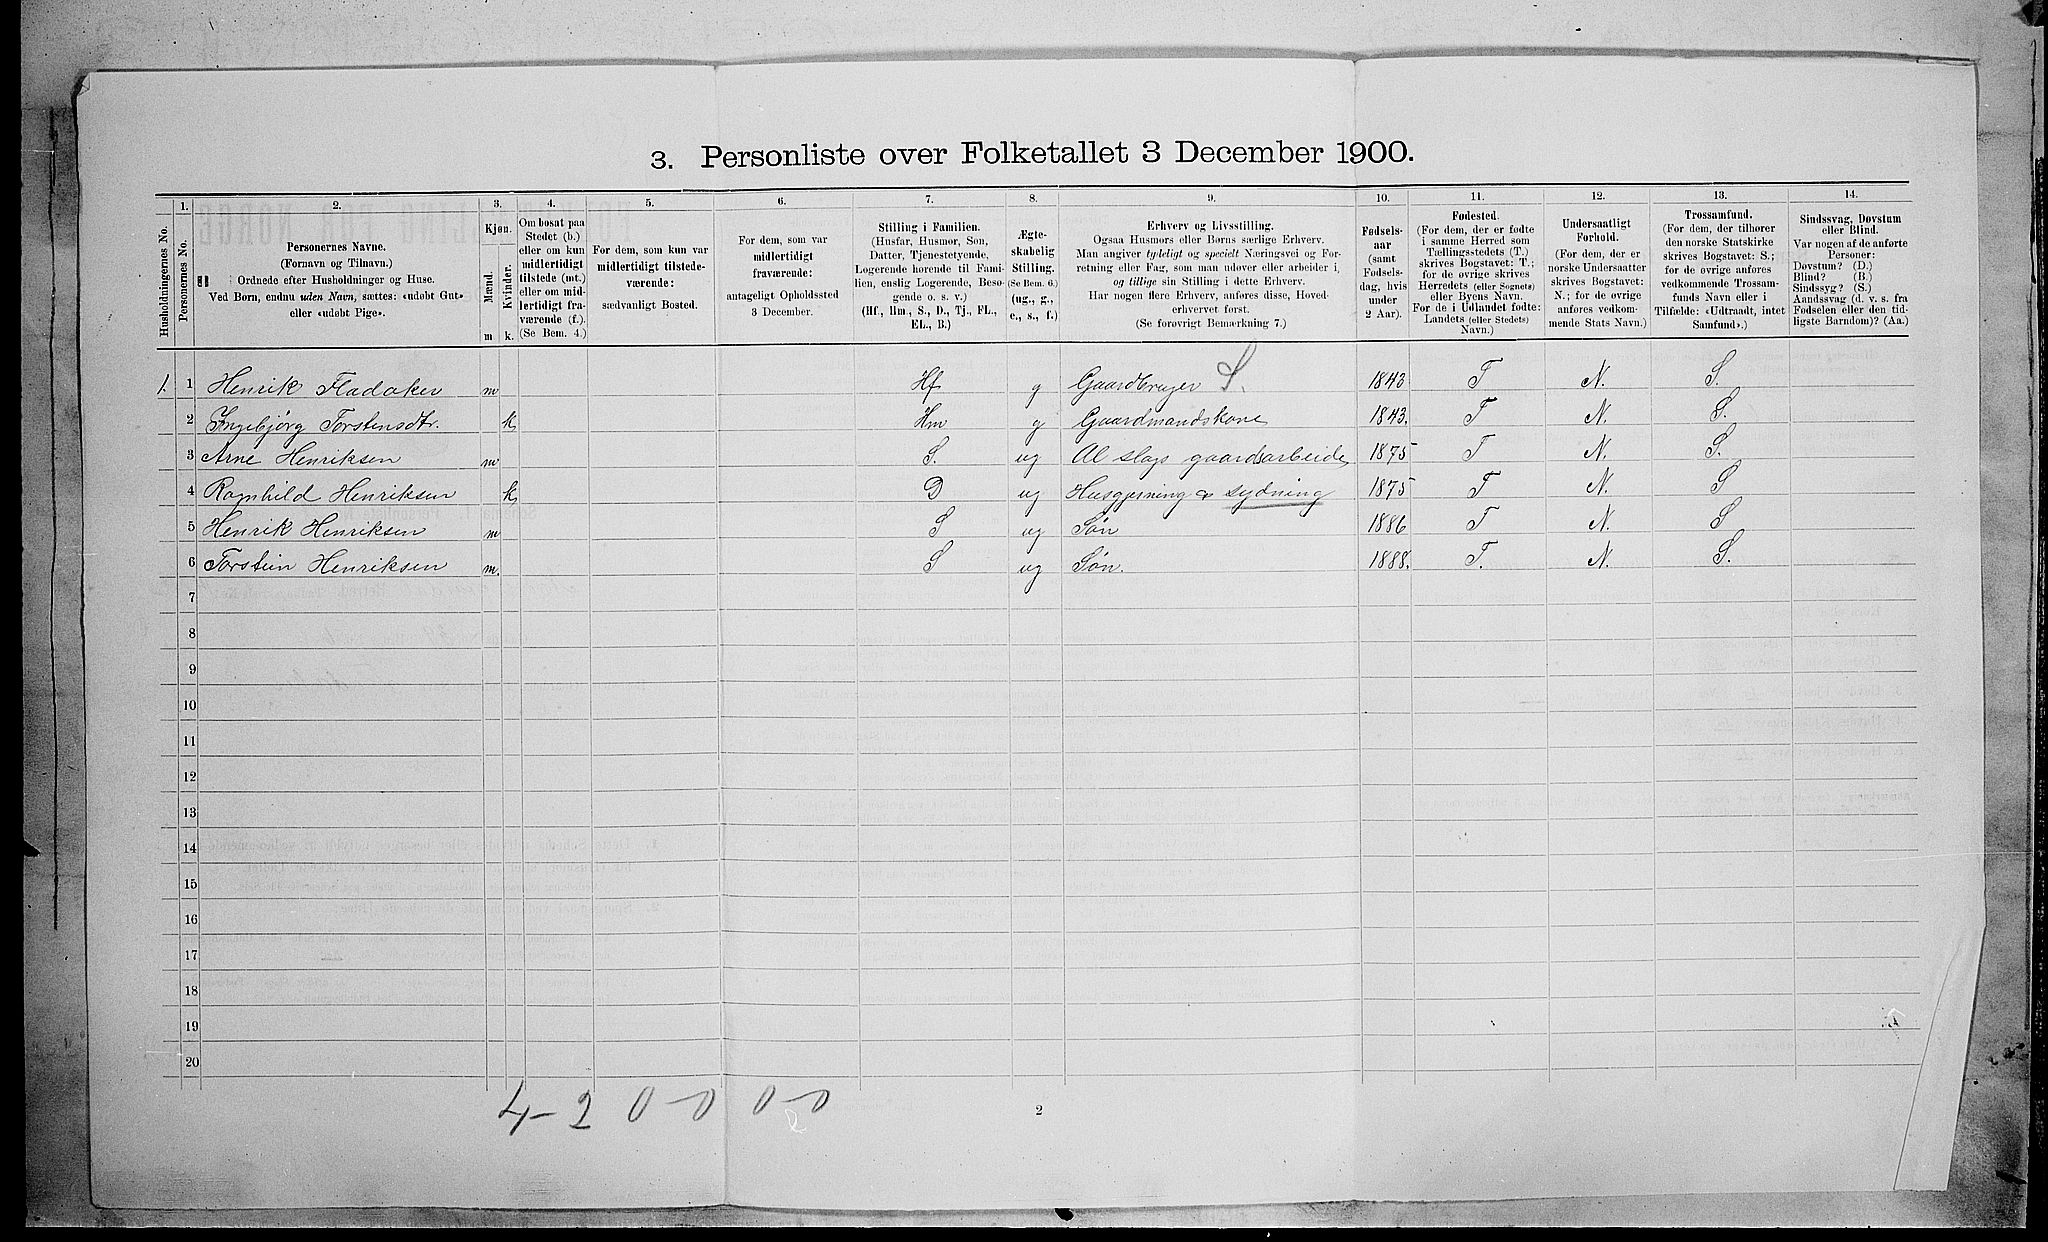 3. Personliste over Folketallet 3 December 1900.
1. 2. 3. 4. 5. 6. 7. 8. 9. 10. 11. 12. 13. 14.
Husholdningernes No.
Personernes No.
Personernes Navne.
(Fornavn og Tilnavn.)
Ordnede efter Husholdninger og Huse.
Ved Børn, endnu uden Navn, sættes: «udøbt Gut»
eller «udøbt Pige».
Kjøn.
Mænd.
Kvinder.
m k.
Om bosat paa
Stedet (b.)
eller om kun
midlertidigt
tilstede (mt.)
eller om mid-
lertidigt fra-
værende (f.)
(Se Bem. 4.)
For dem, som kun var
midlertidigt tilstede-
værende:
sædvanligt Bosted.
For dem, som var
midlertidigt
fraværende:
antageligt Opholdssted
3 December.
Stilling i Familien.
(Husfar, Husmor, Søn,
Datter, Tjenestetyende,
Logerende hørende til Fami-
lien, enslig Logerende, Besø-
gende o. s. v.)
(Hf., Hm., S., D., Tj., FL.,
EL., B.)
Ægte-
skabelig
Stilling.
(Se Bem. 6.)
(ug., g.,
e., s., f.)
Erhverv og Livsstilling.
Ogsaa Husmors eller Børns særlige Erhverv.
Man angiver tydeligt og specielt Næringsvei og For-
retning eller Fag, som man udøver eller arbeider i,
og tillige sin Stilling i dette Erhverv.
Har nogen flere Erhverv, anføres disse, Hoved-
erhvervet først.
(Se forøvrigt Bemærkning 7.)
Fødsels-
aar
(samt
Fødsels-
dag, hvis
under
2 Aar).
Fødested.
(For dem, der er fødte
i samme Herred som
Tællingsstedets (T.)
skrives Bogstavet: T.;
for de øvrige skrives
Herredets (eller Sognets)
eller Byens Navn.
For de i Udlandet fødte:
Landets (eller Stedets)
Navn.)
Undersaatligt
Forhold.
(For dem, der er
norske Undersaatter
skrives Bogstavet:
N.; for de øvrige
anføres vedkom-
mende Stats Navn.)
Trossamfund.
(For dem, der tilhører
den norske Statskirke
skrives Bogstavet: S.;
for de øvrige anføres
vedkommende Trossam-
funds Navn eller i
Tilfælde: «Udtraadt, intet
Samfund».)
Sindssvag, Døvstum
eller Blind.
Var nogen af de anførte
Personer:
Døvstum? (D.)
Blind? (B.)
Sindssyg? (S.)
Aandssvag (d. v. s. fra
Fødselen eller den tid-
ligste Barndom)? (Aa.)
1. 1 Henrik Fladaker m Hf g Gaardbruger S. 1843 T N. S.
2 Ingebjörg Torstensdtr. k Hm g Gaardmandskone 1843. T N. S.
3 Arne Henriksen m S. ug Al slags gaardsarbeide 1875 T N. S.
4 Ragnhild Henriksen k D ug Husgjerning & sydning 1875 T N. S
5 Henrik Henriksen m S ug Sön 1886 T N. S
6 Torstein Henriksen m. S ug Sön. 1888. T. N. S.
7
8
9
10
11
12
13
14
15
16
17
18
19
20
2